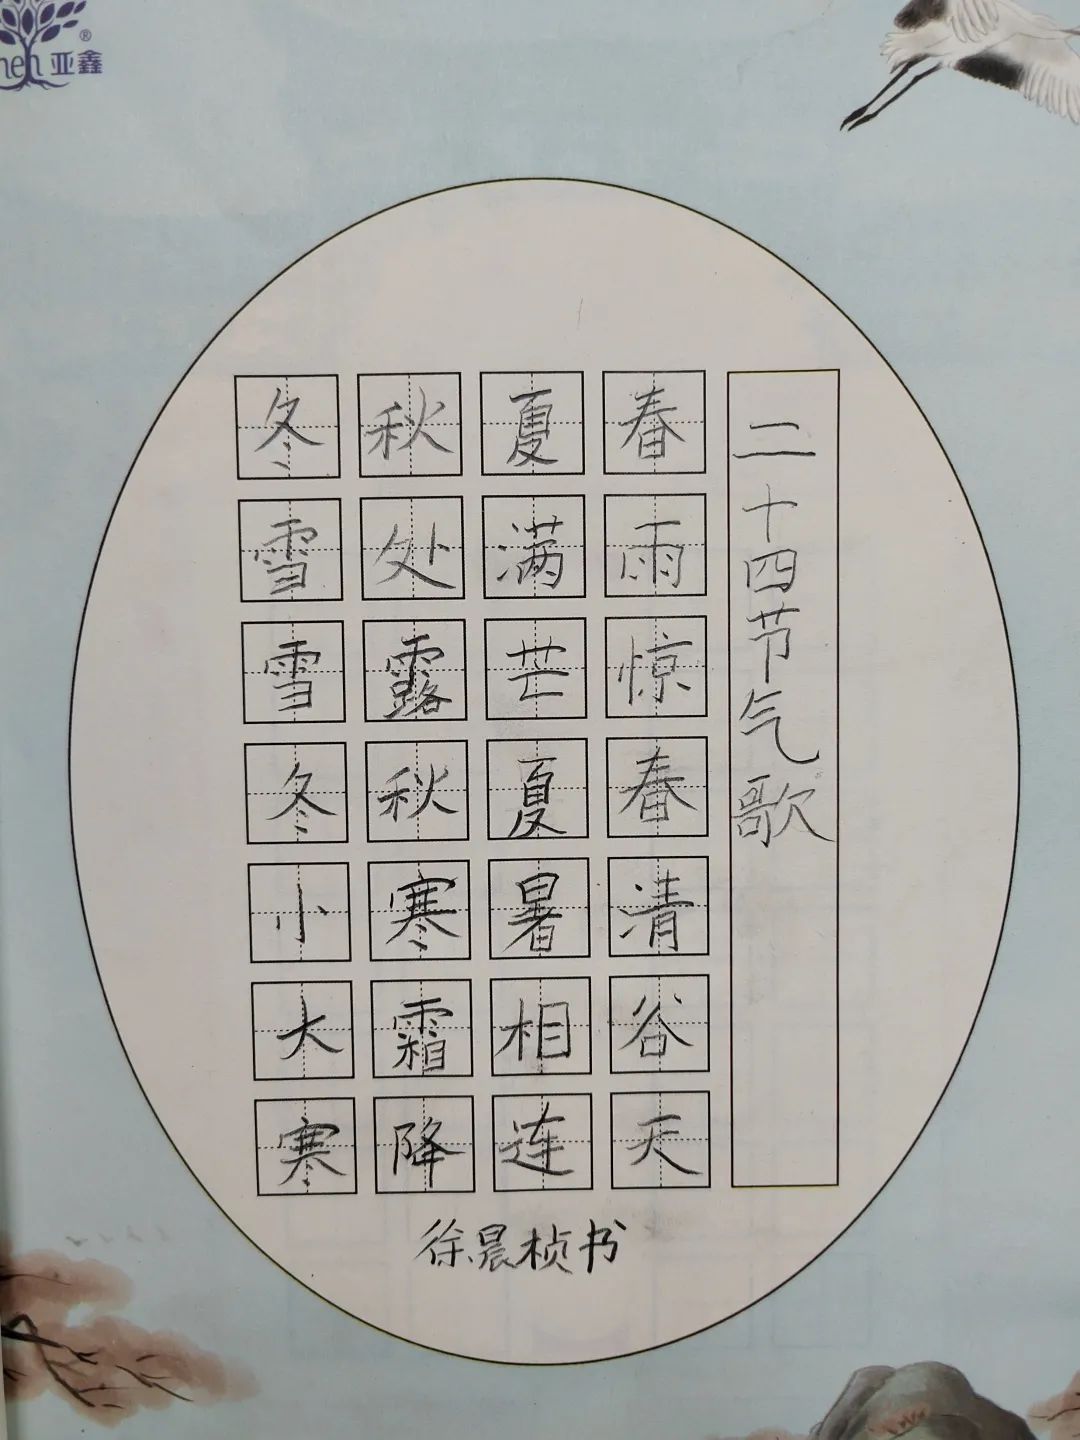 亚鑫®
二十四节气歌
春雨惊春清谷天
夏满芒夏暑相连
秋处露秋寒霜降
冬雪雪冬小大寒
徐晨桢书